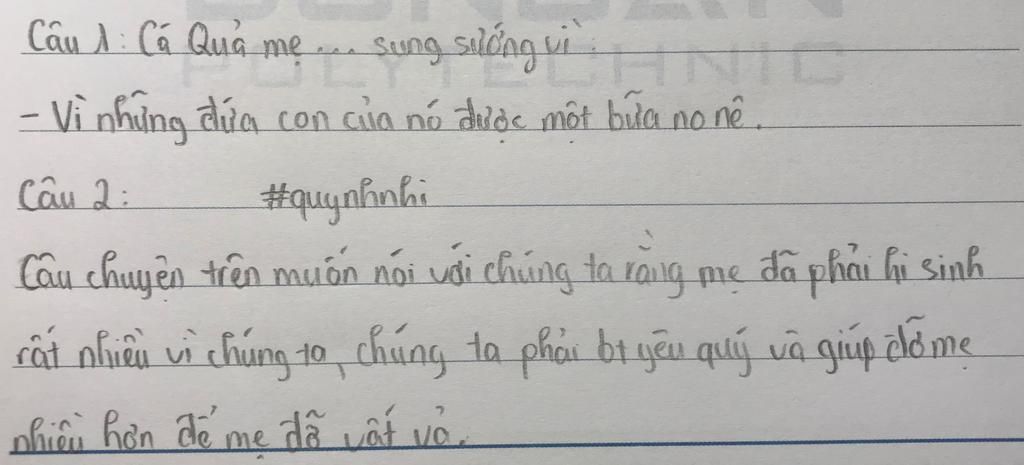 DONGAN
POLYTECHNIC
Câu 1: Cá Quả mẹ ... sung sướng vì:
- Vì những đứa con của nó được một bữa no nê.
Câu 2: #quynhnhi
Câu chuyện trên muốn nói với chúng ta rằng mẹ đã phải hi sinh
rất nhiều vì chúng ta, chúng ta phải bt yêu quý và giúp đỡ mẹ
nhiều hơn để mẹ đỡ vất vả.